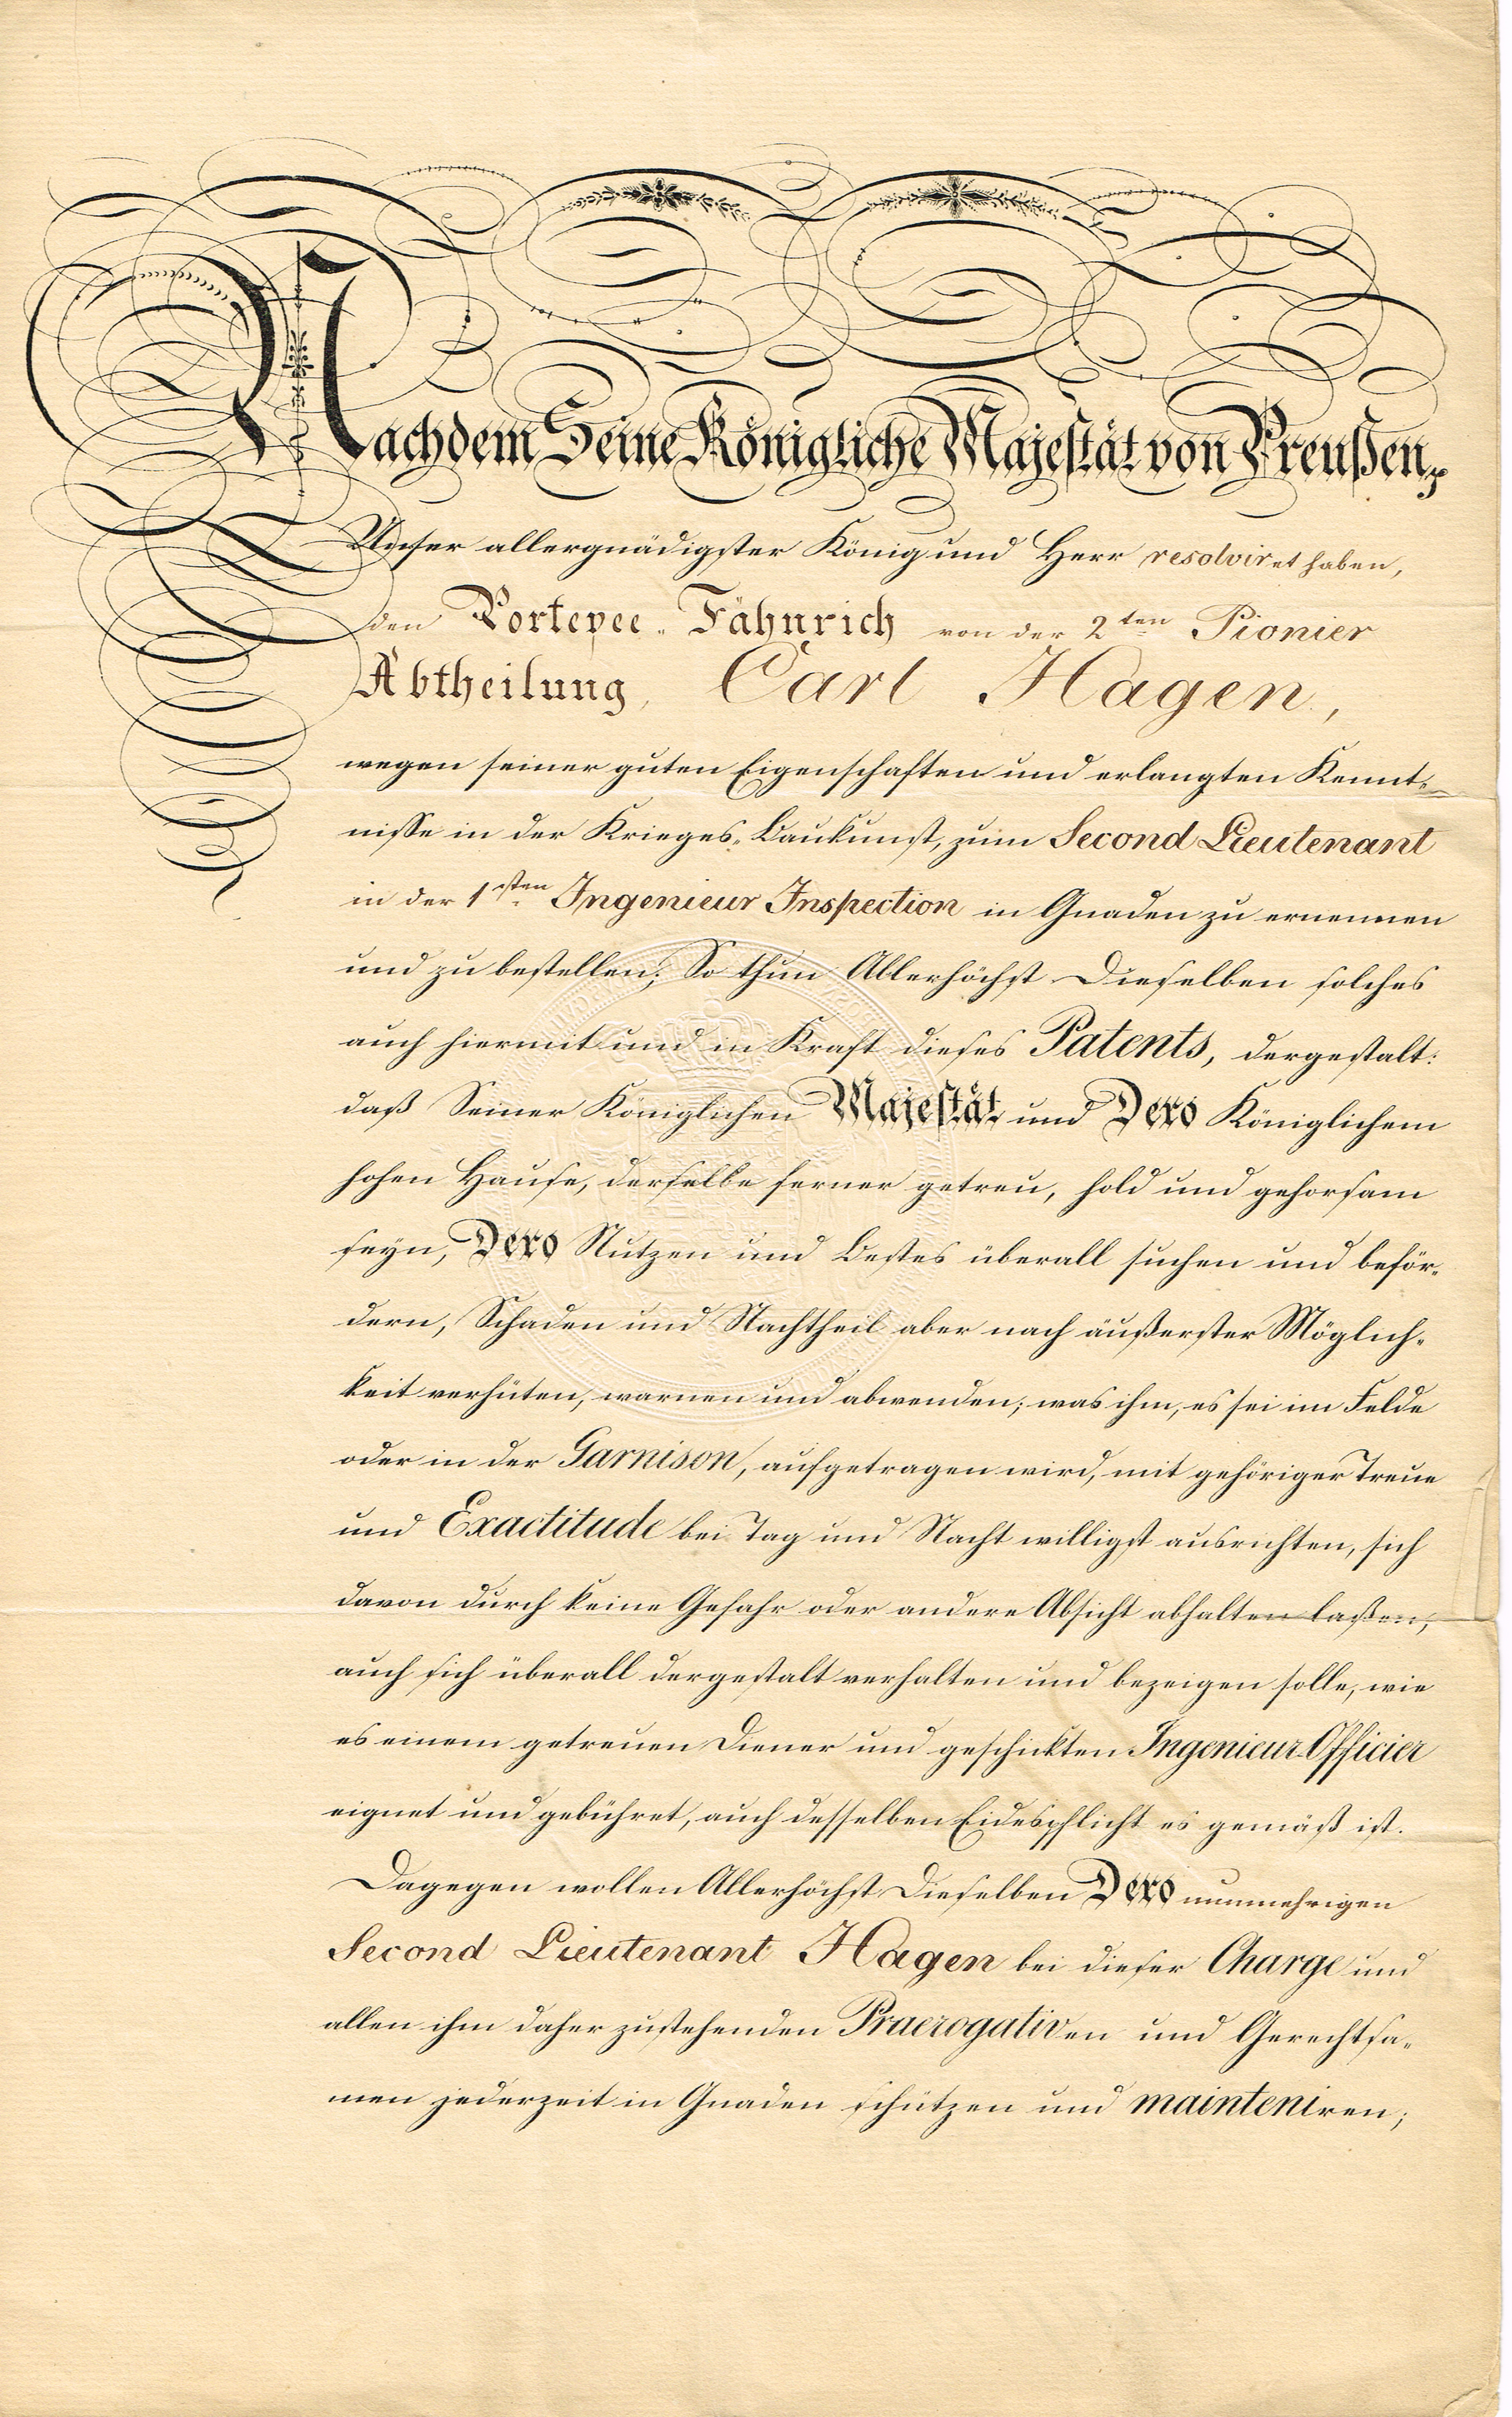 Nachdem Seine Königliche Majestät von Preußen,
Unser allergnädigster König und Herr resolviret haben,
den Portepee-Fähnrich von der 2ten Pionier
Abtheilung, Carl Hagen,
wegen seiner guten Eigenschaften und erlangten Kennt-
nisse in der Krieges-Baukunst, zum Second Lieutenant
in der 1sten Ingenieur Inspection in Gnaden zu ernennen
und zu bestellen; So thun Allerhöchst Dieselben solches
auch hiermit und in Kraft dieses Patents, dergestalt:
daß Seiner Königlichen Majestät und Dero Königlichem
hohen Hause, derselbe ferner getreu, hold und gehorsam
seyn, Dero Nutzen und Bestes überall suchen und beför-
dern, Schaden und Nachtheil aber nach äußerster Möglich-
keit verhüten, warnen und abwenden; was ihm, es sei im Felde
oder in der Garnison, aufgetragen wird, mit gehöriger Treue
und Exactitude bei Tag und Nacht willigst ausrichten, sich
davon durch keine Gefahr oder andere Absicht abhalten laßen,
auch sich überall dergestalt verhalten und bezeigen solle, wie
es einem getreuen Diener und geschickten Ingenieur-Officier
eignet und gebühret, auch desselben Eidespflicht es gemäß ist.
Dagegen wollen Allerhöchst Dieselben Dero nunmehrigen
Second Lieutenant Hagen bei dieser Charge und
allen ihm daher zustehenden Praerogativen und Gerechtsa-
men jederzeit in Gnaden schützen und mainteniren;